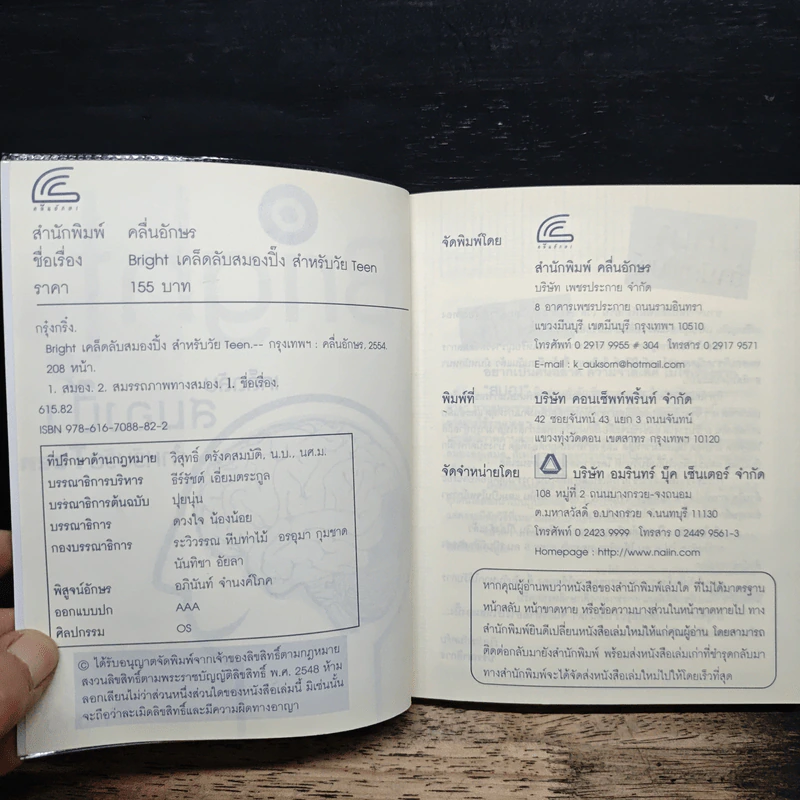 คลื่นอักษร
สำนักพิมพ์ คลื่นอักษร
ชื่อเรื่อง Bright เคล็ดลับสมองปิ๊ง สำหรับวัย Teen
ราคา 155 บาท
กรุ๋งกริ๋ง.
Bright เคล็ดลับสมองปิ๊ง สำหรับวัย Teen.-- กรุงเทพฯ : คลื่นอักษร, 2554.
208 หน้า.
1. สมอง. 2. สมรรถภาพทางสมอง. I. ชื่อเรื่อง.
615.82
ISBN 978-616-7088-82-2
ที่ปรึกษาด้านกฎหมาย วิสุทธิ์ ตรังคสมบัติ, น.บ., นศ.ม.
บรรณาธิการบริหาร ธีร์รัชต์ เอี่ยมตระกูล
บรรณาธิการต้นฉบับ ปุยนุ่น
บรรณาธิการ ดวงใจ น้องน้อย
กองบรรณาธิการ ระวิวรรณ หีบท่าไม้ อรอุมา กุมชาด
นันทิชา อัยลา
พิสูจน์อักษร อภินันท์ จำนงค์โภค
ออกแบบปก AAA
ศิลปกรรม OS
© ได้รับอนุญาตจัดพิมพ์จากเจ้าของลิขสิทธิ์ตามกฎหมาย
สงวนลิขสิทธิ์ตามพระราชบัญญัติลิขสิทธิ์ พ.ศ. 2548 ห้าม
ลอกเลียนไม่ว่าส่วนหนึ่งส่วนใดของหนังสือเล่มนี้ มิเช่นนั้น
จะถือว่าละเมิดลิขสิทธิ์และมีความผิดทางอาญา
คลื่นอักษร
จัดพิมพ์โดย
สำนักพิมพ์ คลื่นอักษร
บริษัท เพชรประกาย จำกัด
8 อาคารเพชรประกาย ถนนรามอินทรา
แขวงมีนบุรี เขตมีนบุรี กรุงเทพฯ 10510
โทรศัพท์ 0 2917 9955 # 304 โทรสาร 0 2917 9571
E-mail : k_auksorn@hotmail.com
พิมพ์ที่ บริษัท คอนเซ็พท์พริ้นท์ จำกัด
42 ซอยจันทน์ 43 แยก 3 ถนนจันทน์
แขวงทุ่งวัดดอน เขตสาทร กรุงเทพฯ 10120
จัดจำหน่ายโดย บริษัท อมรินทร์ บุ๊ค เซ็นเตอร์ จำกัด
108 หมู่ที่ 2 ถนนบางกรวย-จงถนอม
ต.มหาสวัสดิ์ อ.บางกรวย จ.นนทบุรี 11130
โทรศัพท์ 0 2423 9999 โทรสาร 0 2449 9561-3
Homepage : http://www.naiin.com
หากคุณผู้อ่านพบว่าหนังสือของสำนักพิมพ์เล่มใด ที่ไม่ได้มาตรฐาน
หน้าสลับ หน้าขาดหาย หรือข้อความบางส่วนในหน้าขาดหายไป ทาง
สำนักพิมพ์ยินดีเปลี่ยนหนังสือเล่มใหม่ให้แก่คุณผู้อ่าน โดยสามารถ
ติดต่อกลับมายังสำนักพิมพ์ พร้อมส่งหนังสือเล่มเก่าที่ชำรุดกลับมา
ทางสำนักพิมพ์จะได้จัดส่งหนังสือเล่มใหม่ไปให้โดยเร็วที่สุด